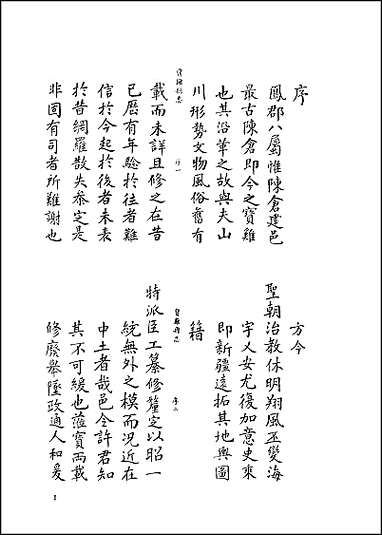 序
鳳郡八屬惟陳倉建邑
最古陳倉即今之寶雞
也其沿革之故與夫山
川形勢文物風俗舊有
寶雞縣志
序一
載而未詳且修之在昔
已歷有年驗於往者難
信於今起於後者未表
於昔網羅散失參定是
非固有司者所難謝也
方今
聖朝治教休明翔風丕變海
宇乂安尤復加意史來
即新疆遠拓其地輿圖
籍
寶雞縣志
序二
特派臣工纂修釐定以昭一
統無外之模而况近在
中土者哉邑令許君知
其不可緩也蒞寶兩載
修廢舉墜政通人和爰
1